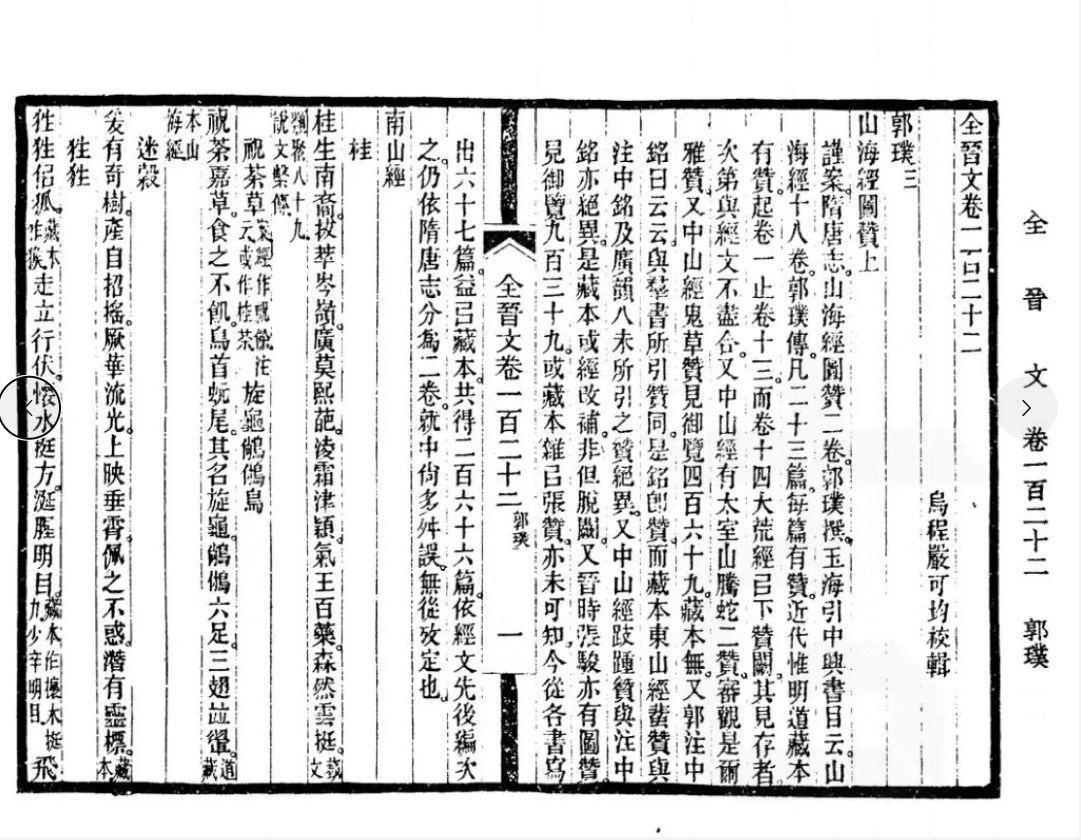 全晉文卷一百二十二
烏程嚴可均校輯
郭璞三
山海經圖贊上
謹案。隋唐志。山海經圖贊二卷。郭璞撰。玉海引中興書目云。山
海經十八卷。郭璞傳。凡二十三篇。每篇有贊。近代惟明道藏本
有贊。起卷一止卷十三。而卷十四大荒經㠯下贊闕。其見存者
次第與經文不盡合。又中山經有太室山騰蛇二贊。審觀是爾
雅贊。又中山經鬼草贊見御覽四百六十九。藏本無。又郭注中
銘曰云云。與羣書所引贊同。是銘卽贊。而藏本東山經蜚贊與
注中銘及廣韻八未所引之贊絕異。又中山經跂踵贊與注中
銘亦絕異。是藏本或經改補。非但脫闕。又晉時張駿亦有圖贊。
見御覽九百三十九。或藏本雜㠯張贊。亦未可知。今從各書寫
全晉文卷一百二十二 郭璞 一
出六十七篇。益㠯藏本。共得二百六十六篇。依經文先後編次
之。仍依隋唐志分爲二卷。就中尙多舛誤。無從攷定也。
南山經
桂
桂生南裔。拔萃岑嶺。廣莫熙葩。淩霜津穎。氣王百藥。森然雲挺。藝文
類聚八十九。
說文繫傳
祝荼草 旋龜 鵂鳥
祝荼嘉草。食之不飢。鳥首虺尾。其名旋龜。六足。三翅竝翬。道藏
本山
海經
迷榖
爰有奇樹。產自招搖。厥華流光。上映垂霄。佩之不惑。潛有靈標。藏本
狌狌
狌狌侣狐。藏本作猴走立行伏。懷木挺力。少辛明目。飛
全晉文 卷一百二十二 郭璞